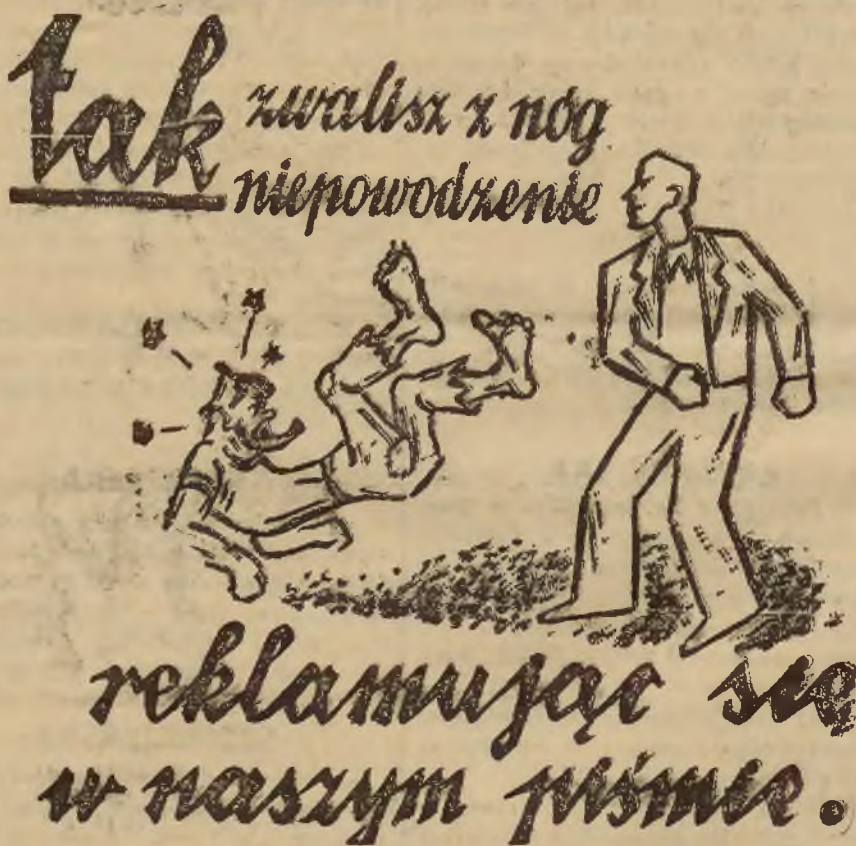 tak zwalisz z nóg
niepowodzenie
reklamując się
w naszym piśmie.